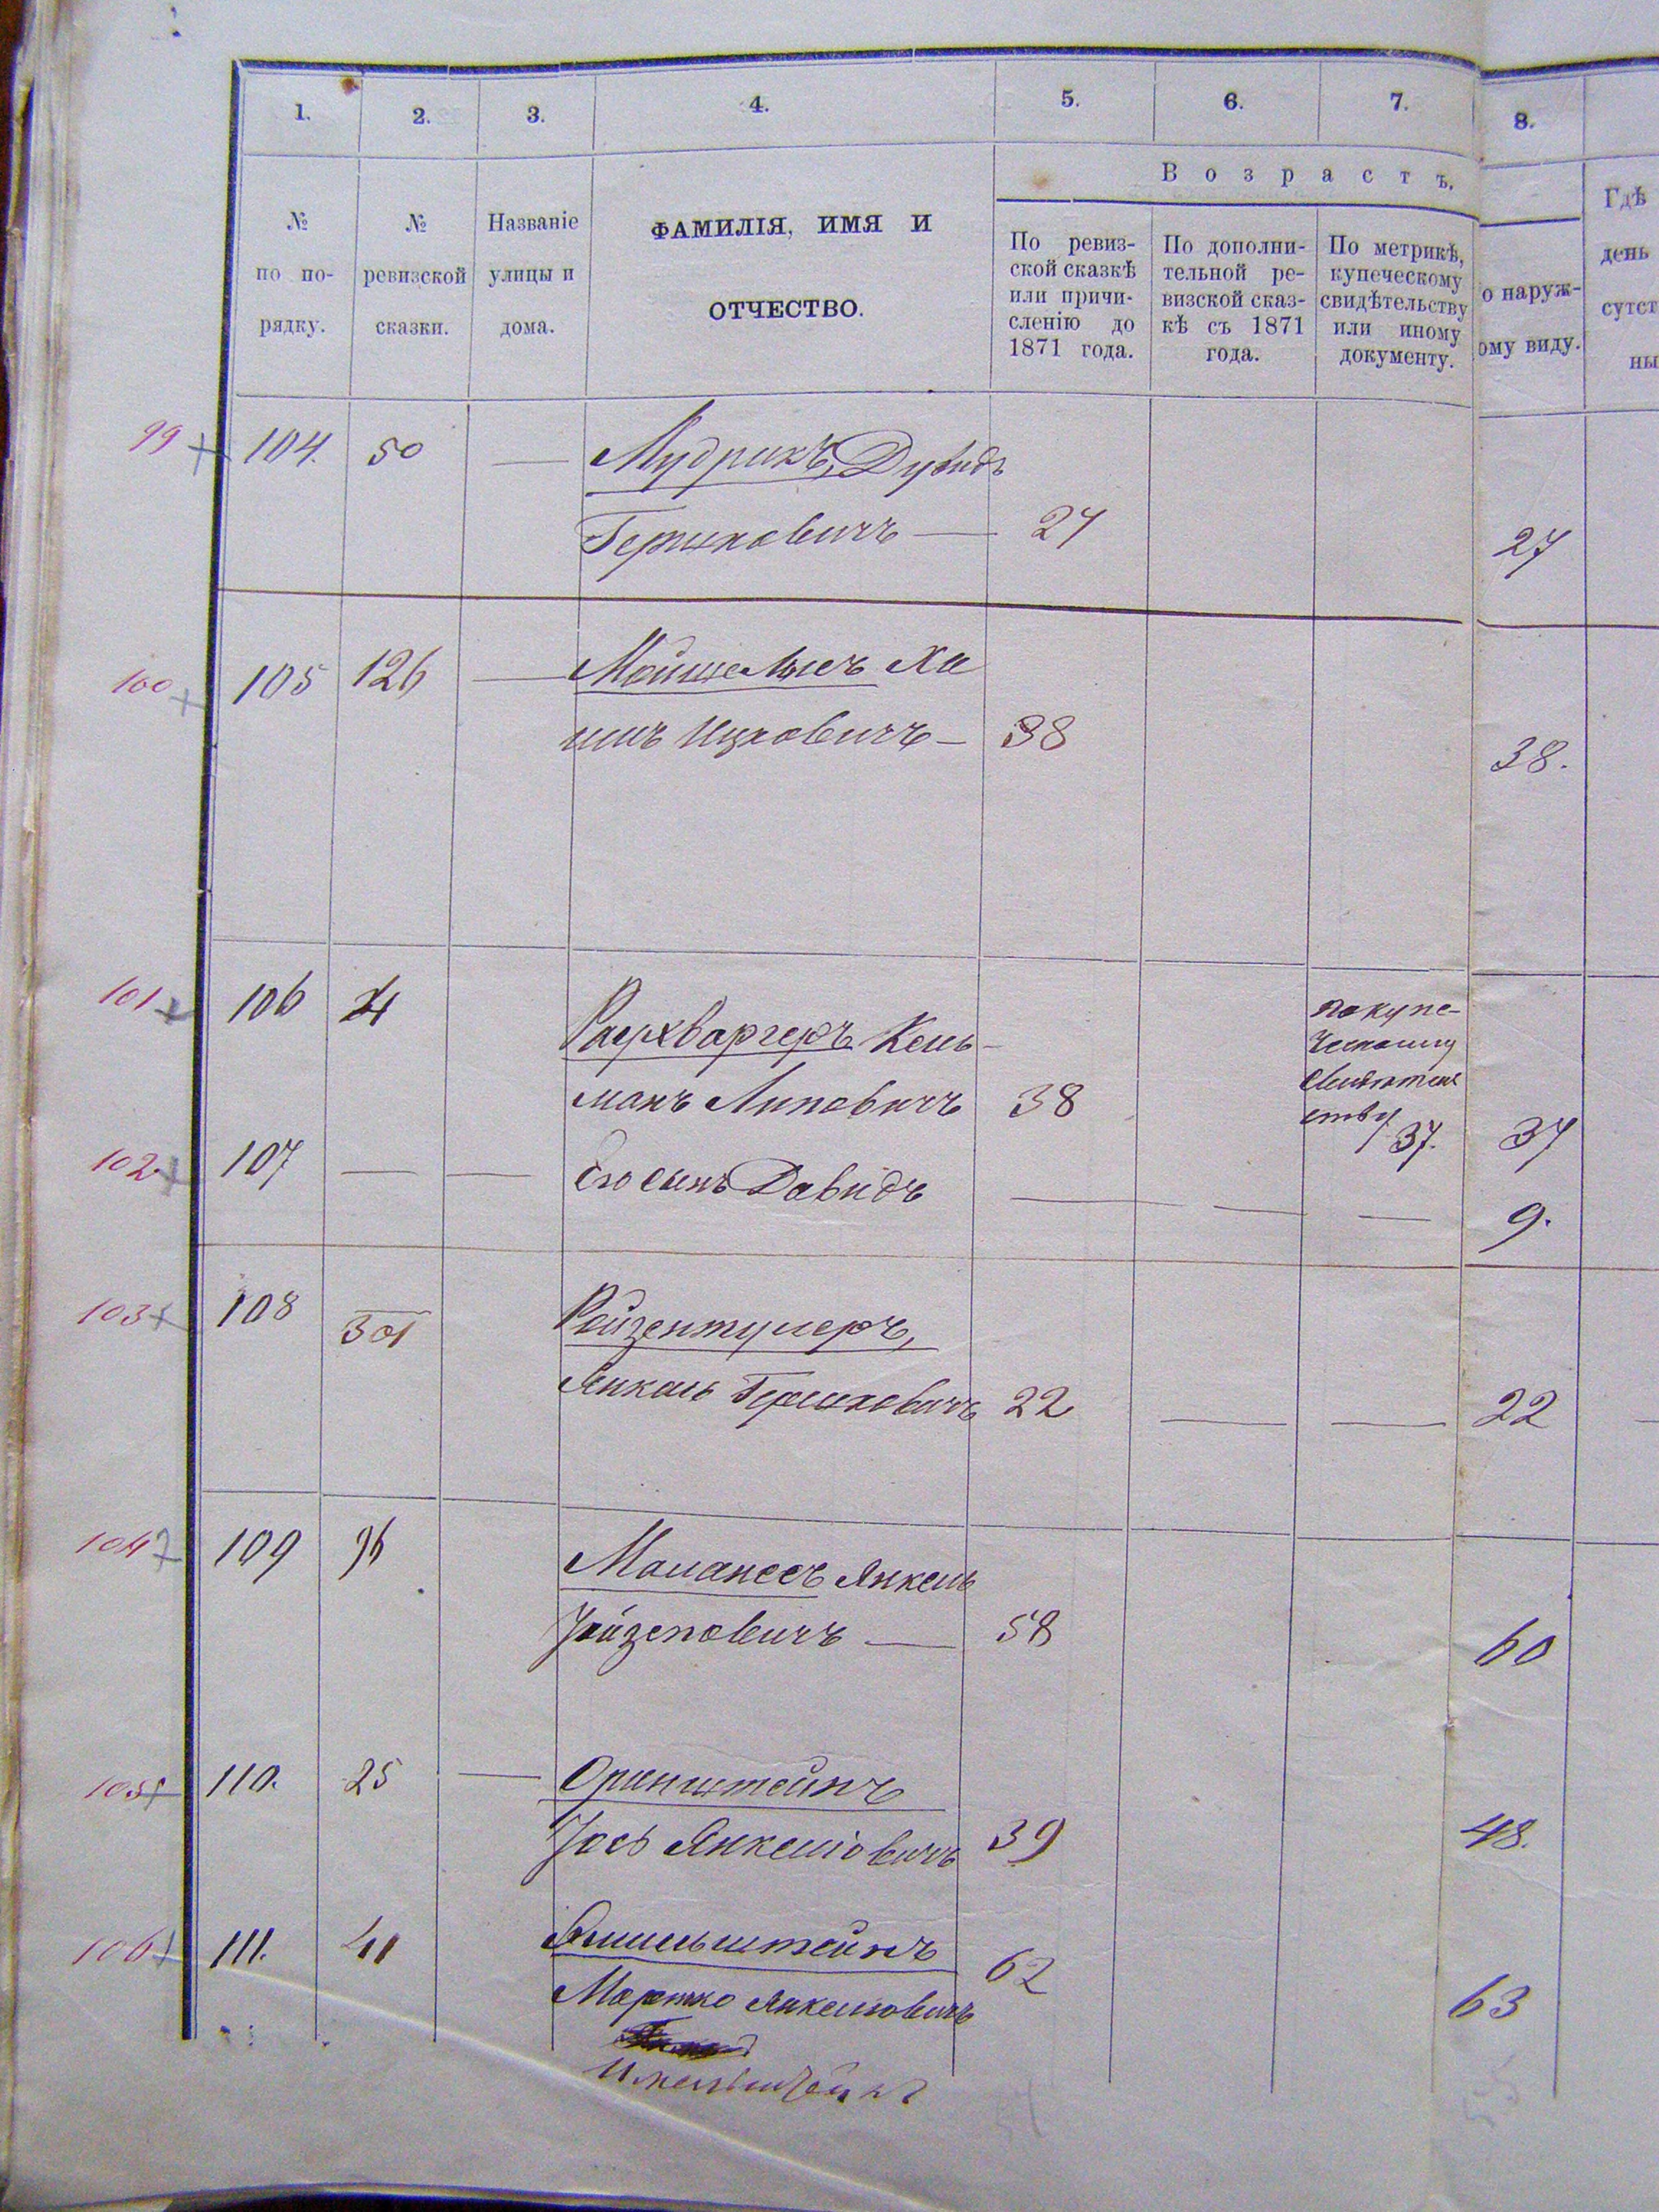 1. 2. 3. 4. 5. 6. 7. 8.
В о з р а с т ъ.
№ по по-рядку.
№ ревизской сказки.
Названіе улицы и дома.
ФАМИЛІЯ, ИМЯ И
ОТЧЕСТВО.
По ревиз-
ской сказкѣ
или причи-
сленію до
1871 года.
По дополни-
тельной ре-
визской сказ-
кѣ съ 1871
года.
По метрикѣ,
купеческому
свидѣтельству
или иному
документу.
о наруж-
ому виду.
Гдѣ
день
сутст
ны
99 104. 50 — Мудрикъ, Дувидъ
Гершковичъ — 27 27
100 105 126 — Мошелисъ Ха
имъ Ицковичъ — 38 38.
101 106 Раухваргеръ Кель-
манъ Липовичъ 38
по купе-
ческому
свидѣтель
ству 37. 37
102. 107 — — Его сынъ Давидъ — — — 9.
103 108 301 Ройзентулеръ,
Янкель Гершковичъ 22 — — 22
104 109 96 Маланесъ Янкель
Іойзеповичъ — 58 60
105 110. 25 — Оринштейнъ
Іось Янкеліовичъ 39 48.
106 111. 41
Мортко Янкеліовичъ 62 63